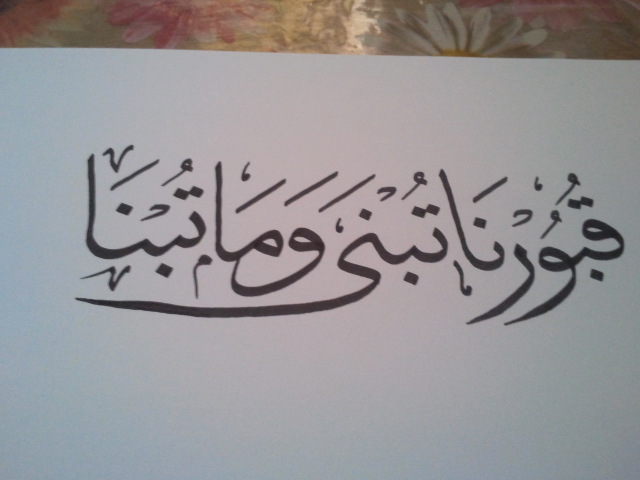 قُبُورُنَا تُبْنَى وَمَا تُبْنَا